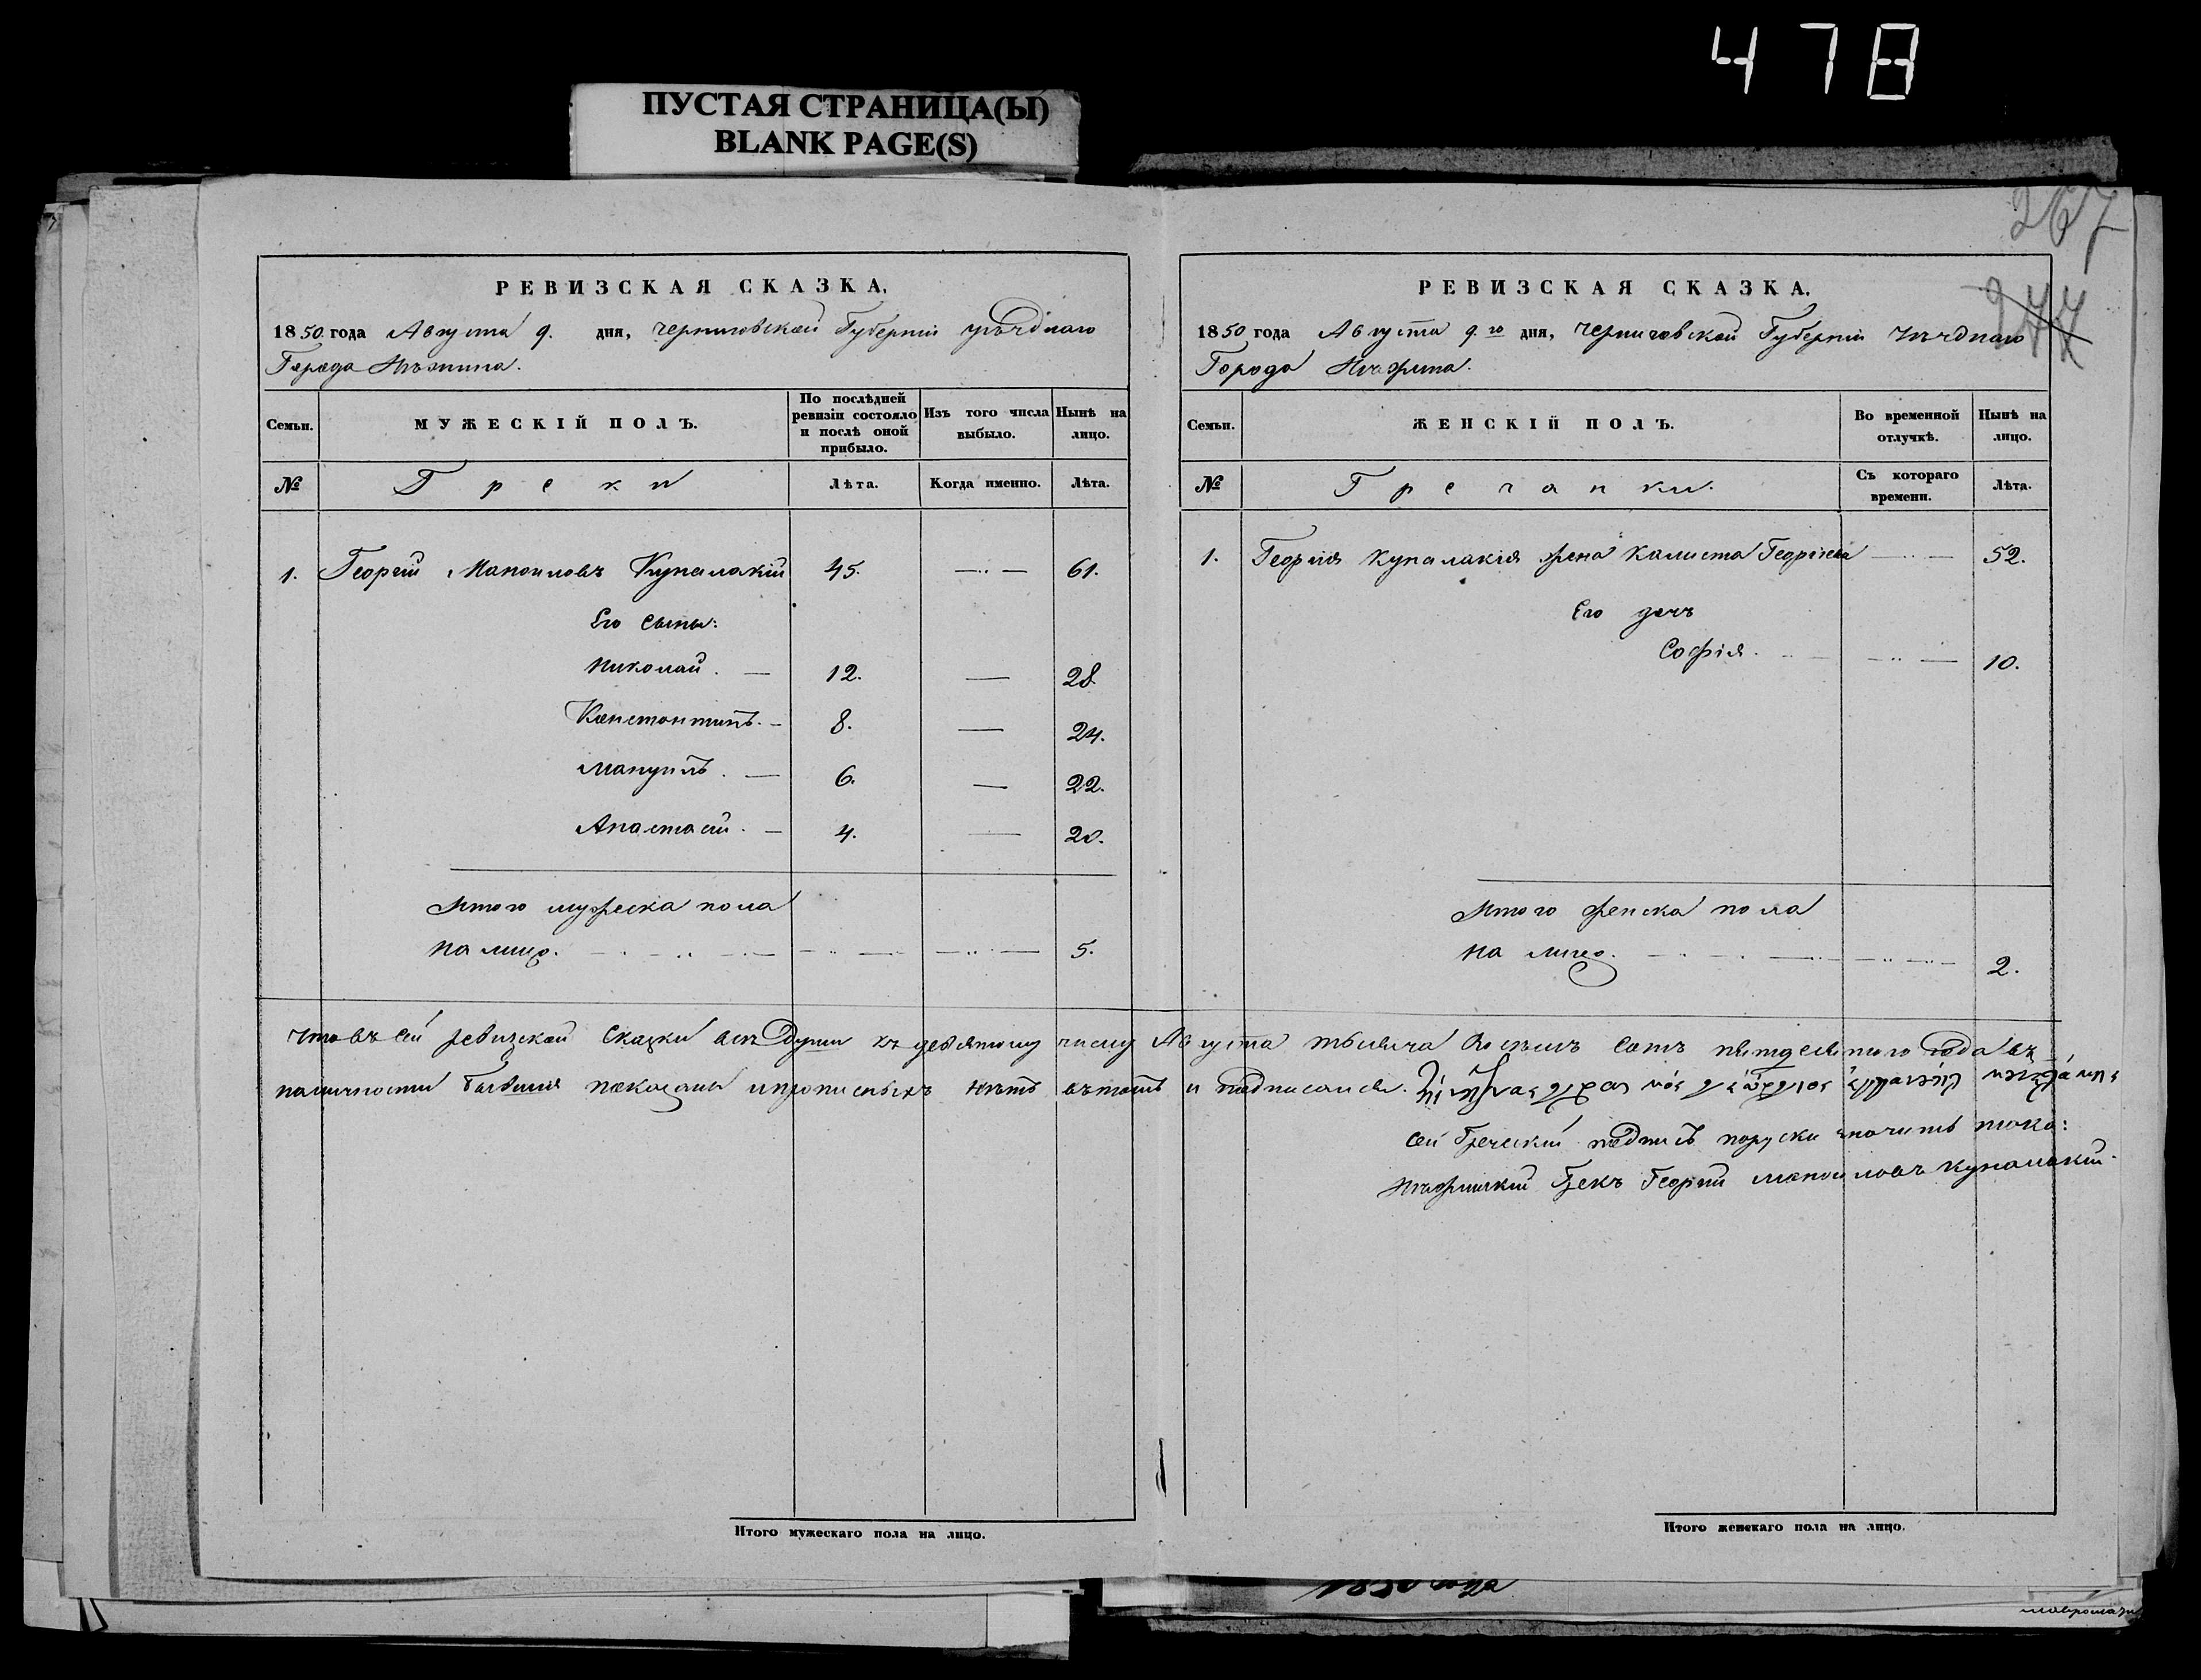 478
ПУСТАЯ СТРАНИЦА(Ы)
BLANK PAGE(S)
267
277
РЕВИЗСКАЯ СКАЗКА.
1850 года Августа 9. дня, Черниговской Губерніи уѣзднаго
Города Нѣжина.
Семьи.
МУЖЕСКІЙ ПОЛЪ.
По послѣдней ревизіи состояло и послѣ оной прибыло.
Изъ того числа выбыло.
Нынѣ на лицо.
№
Греки
Лѣта.
Когда именно.
Лѣта.
1. Георгий Маноиловъ Купалакій 45. — 61.
Его сыны:
Николай. — 12. — 28
Константинъ. — 8. — 24.
Мануилъ. — 6. — 22.
Анастасій. — 4. — 20.
Итого мужеска пола
на лицо. — 5.
РЕВИЗСКАЯ СКАЗКА.
1850 года Августа 9.го дня, Черниговской Губерніи уѣзднаго
Города Нѣжина.
Семьи.
ЖЕНСКІЙ ПОЛЪ.
Во временной отлучкѣ.
Нынѣ на лицо.
№
Гречанки.
Съ котораго времени.
Лѣта.
1. Георгія Купалакія жена Калиста Георгіева — 52.
Его дочь
Софія. — 10.
Итого женска пола
на лицо. — 2.
Что въ сей ревизской Сказки всѣ Души къ девятому числу Августа тысяча восемъ сотъ пятдесятого года въ
наличности бывшия показаны и прописныхъ нѣтъ въ томъ и подписался.
сей Греческий подписъ поруски значитъ тако:
Нѣжинский Грекъ Георгий Маноиловъ Купалакій.
Итого мужескаго пола на лицо.
Итого женскаго пола на лицо.